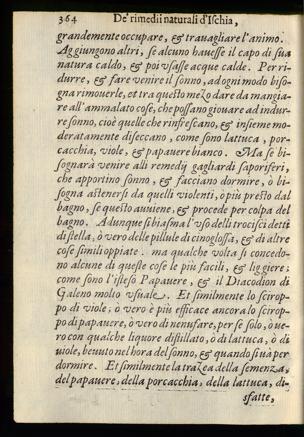 364 De' rimedii naturali d'Ischia,
grandemente occupare, & trauagliare l'animo.
Aggiungono altri, se alcuno hauesse il capo di sua
natura caldo, & poi vsasse acque calde. Per ri-
durre, & fare venire il sonno, ad ogni modo biso-
gna rimouerle, et tra questo mezo dare da mangia-
re all'ammalato cose, che possano giouare ad indur-
re sonno, cioè quelle che rinfrescano, & insieme mo-
deratamente diseccano, come sono lattuca, por-
cacchia, viole, & papauere bianco. Ma se bi-
sognarà venire alli remedij gagliardi saporiferi,
che apportino sonno, & facciano dormire, ò bi-
sogna astenersi da quelli violenti, ò piu presto dal
bagno, se questo auuiene, & procede per colpa del
bagno. Adunque si biasma l'vso delli trocisci detti
di stella, ò vero delle pillule di cinoglossa, & di altre
cose simili oppiate. ma qualche volta si concedo-
no alcune di queste cose le piu facili, & liggiere;
come sono l'istesso Papauere, & il Diacodion di
Galeno molto vsuale. Et similmente lo scirop-
po di viole; ò vero è piu efficace ancora lo scirop-
po di papauere, ò vero di nenufare, per se solo, ò ve-
ro con qualche liquore distillato, ò di lattuca, ò di
viole, beuuto nel hora del sonno, & quando si ua per
dormire. Et similmente la trazea della semenza,
del papauere, della porcacchia, della lattuca, di-
sfatte,